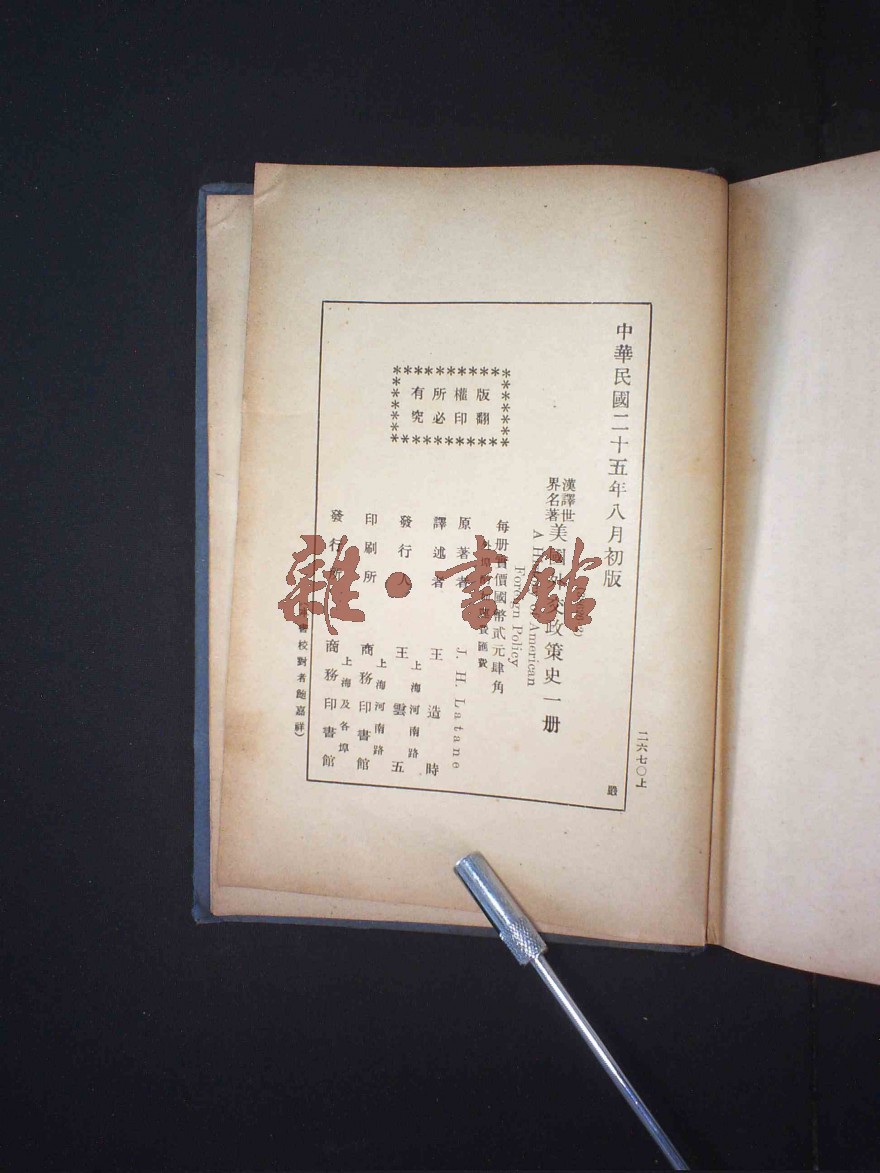 中華民國二十五年八月初版
二六七〇上
漢譯世界名著
美國外交政策史一册
A History of American
Foreign Policy
每册實價國幣貳元肆角
外埠酌加運費匯費
原著者 J. H. Latane
譯述者 王造時
發行人 王雲五
上海河南路
印刷所 商務印書館
上海河南路
發行所 商務印書館
上海及各埠
版權所有
翻印必究
書校對者鮑嘉祥）
雜·書館